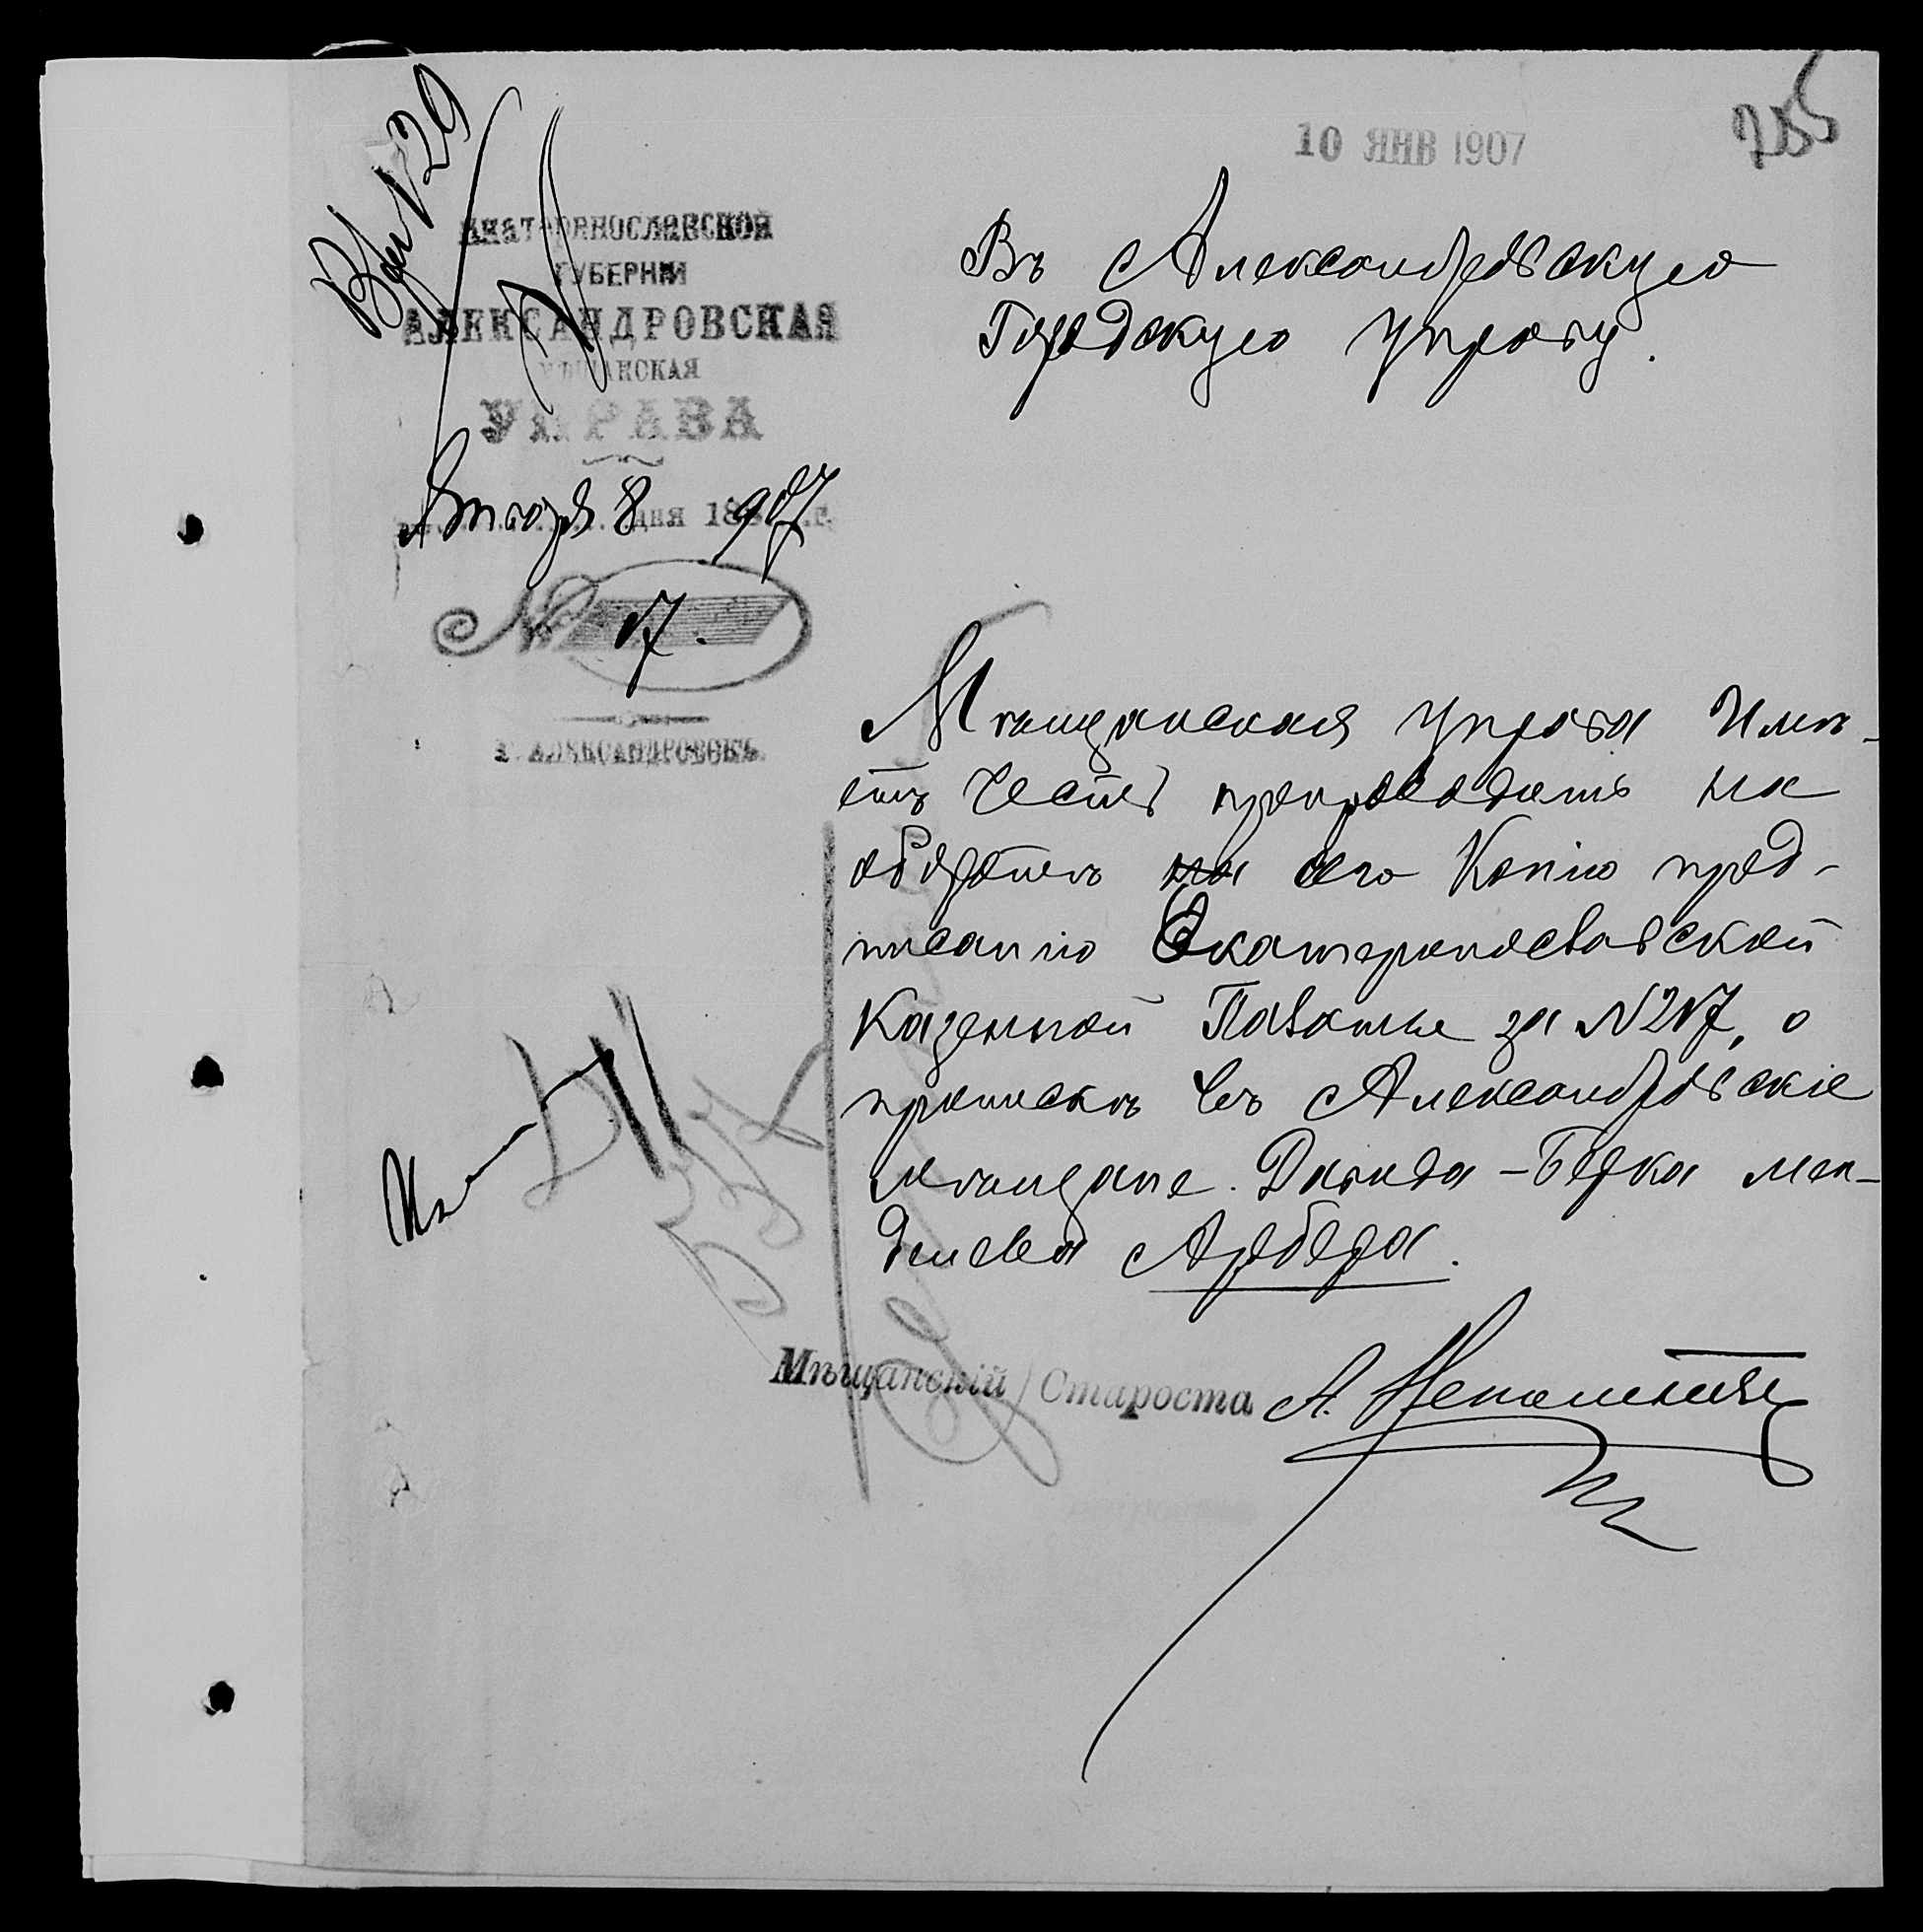 10 ЯНВ 1907
ЕКАТЕРИНОСЛАВСКОЙ
ГУБЕРНІИ
АЛЕКСАНДРОВСКАЯ
МѢЩАНСКАЯ
УПРАВА
Января 8 дня 1907 г.
№ 17.
Г. АЛЕКСАНДРОВСКЪ.
Въ Александровскую
Городскую управу.
Мѣщанская управа имѣ-
етъ честь препроводить на
оборотѣ сего Копію пред-
писанію Екатеринославской
Казенной Палаты за N 217, о
припискѣ въ Александровскіе
мѣщане. Давида-Берка мен-
делева Арбера.
Мѣщанскій Староста А.